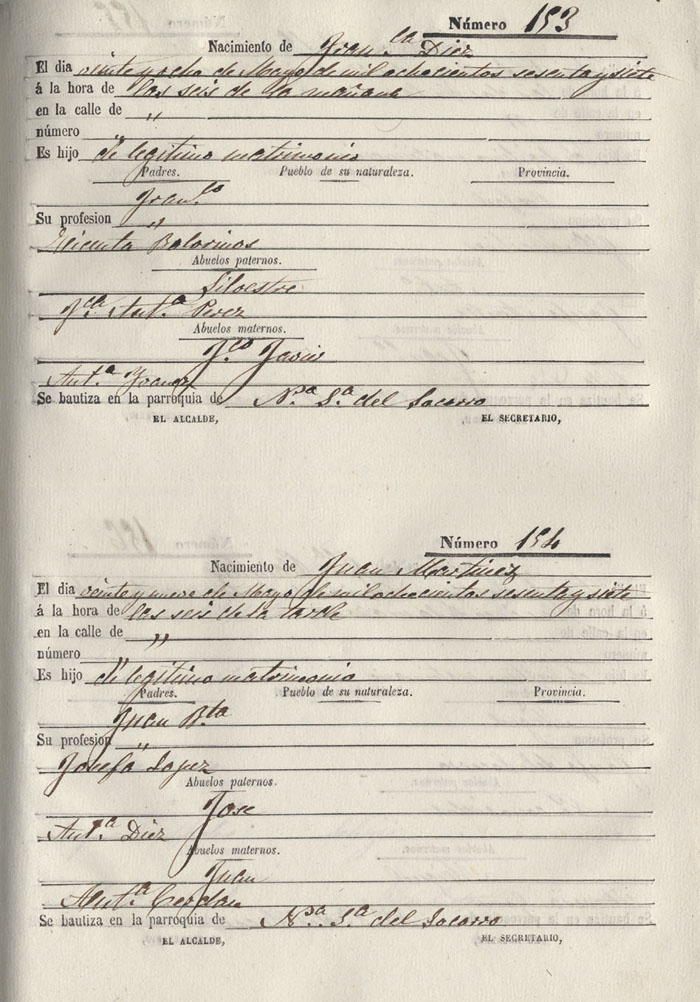 Número 153
Nacimiento de Fran.ca Diez
El dia veinte y ocho de Mayo de mil ochocientos sesenta y siete
á la hora de las seis de la mañana
en la calle de "
número
Es hijo de legitimo matrimonio
Padres. Pueblo de su naturaleza. Provincia.
Fran.co
Su profesion "
Abuelos paternos.
Silvestre
Ant.a Perez
Abuelos maternos.
Ant.a
Se bautiza en la parroquia de N.ª S.ª del Socorro
EL ALCALDE, EL SECRETARIO,
Número 154
Nacimiento de Juan Martinez
El dia veinte y nueve de Mayo de mil ochocientos sesenta y siete
á la hora de las seis de la tarde
en la calle de "
número "
Es hijo de legitimo matrimonio
Padres. Pueblo de su naturaleza. Provincia.
Juan B.ta
Su profesion "
Josefa Lopez
Abuelos paternos.
Jose
Ant.a Diez
Abuelos maternos.
Juan
Ant.a Cerdan
Se bautiza en la parroquia de N.ª S.ª del Socorro
EL ALCALDE, EL SECRETARIO,